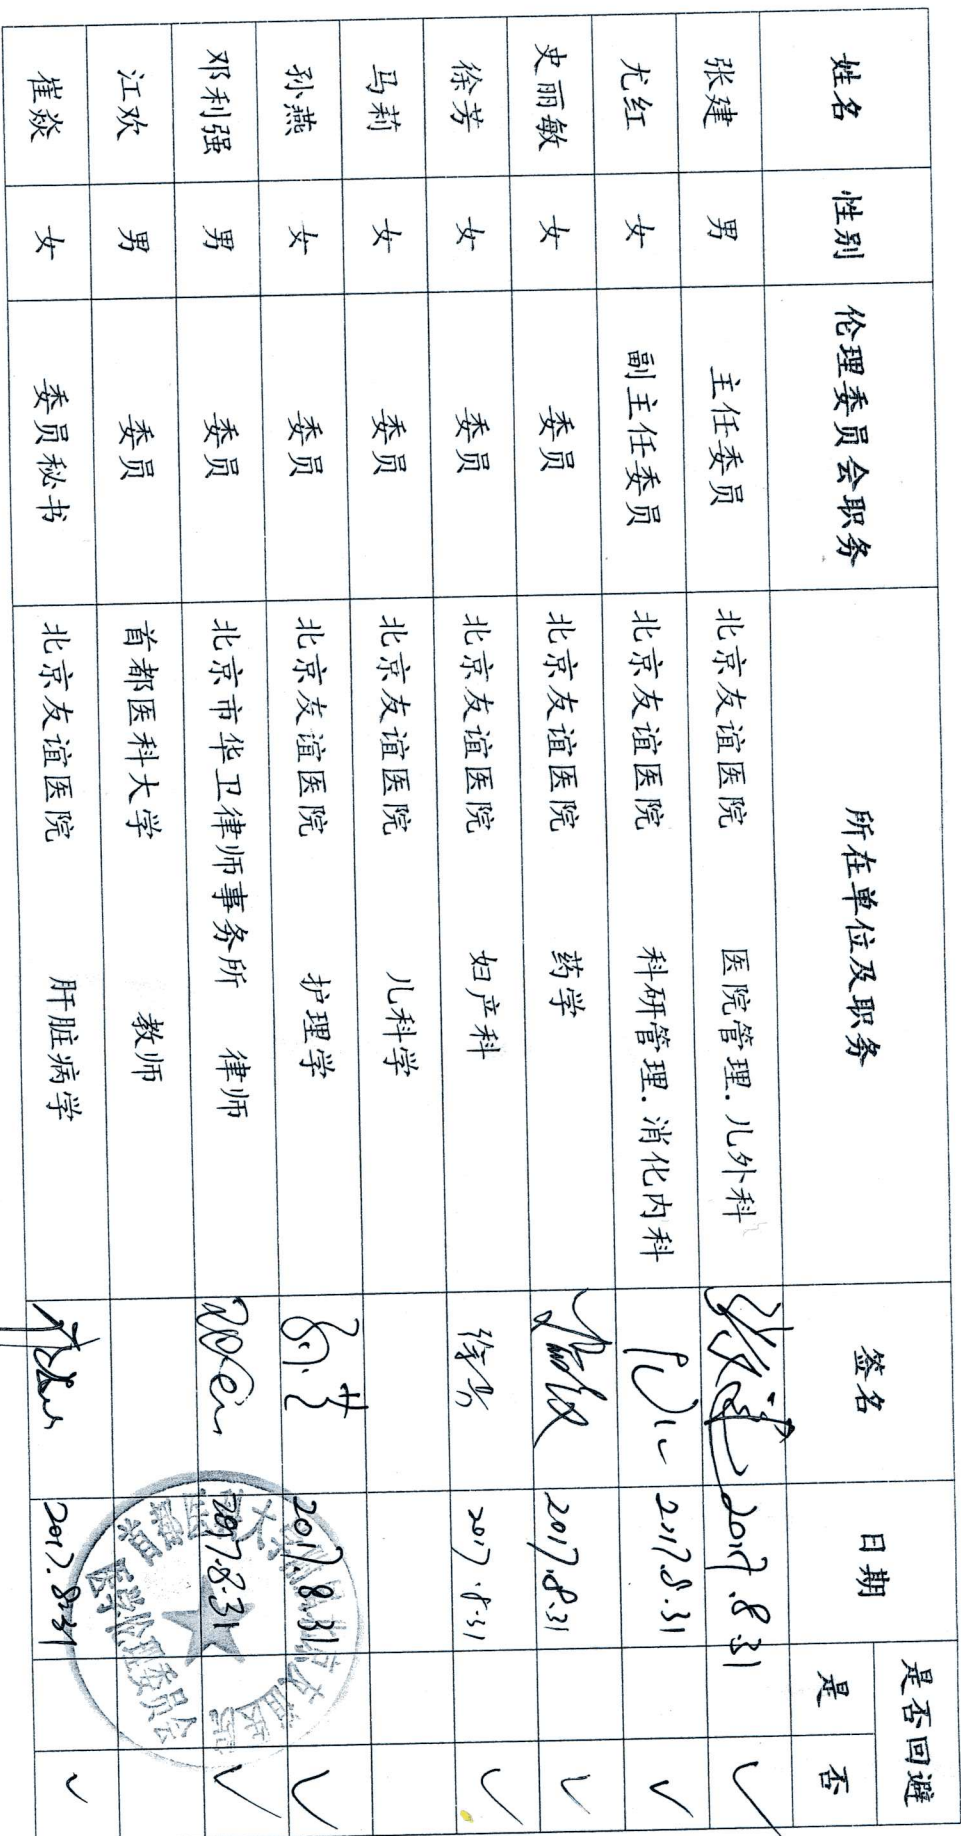 姓名 性别 伦理委员会职务 所在单位及职务 签名 日期 是否回避
是 否
张建 男 主任委员 北京友谊医院 医院管理.儿外科 张建 2017.8.31 ✓
尤红 女 副主任委员 北京友谊医院 科研管理.消化内科 2017.8.31 ✓
史丽敏 女 委员 北京友谊医院 药学 2017.8.31 ✓
徐芳 女 委员 北京友谊医院 妇产科 徐芳 2017.8.31 ✓
马莉 女 委员 北京友谊医院 儿科学
孙燕 女 委员 北京友谊医院 护理学 2017.8.31 ✓
邓利强 男 委员 北京市华卫律师事务所 律师 2017.8.31 ✓
江欢 男 委员 首都医科大学 教师
崔焱 女 委员秘书 北京友谊医院 肝脏病学 2017.8.31 ✓
首都医科大学附属北京友谊医院
医学伦理委员会